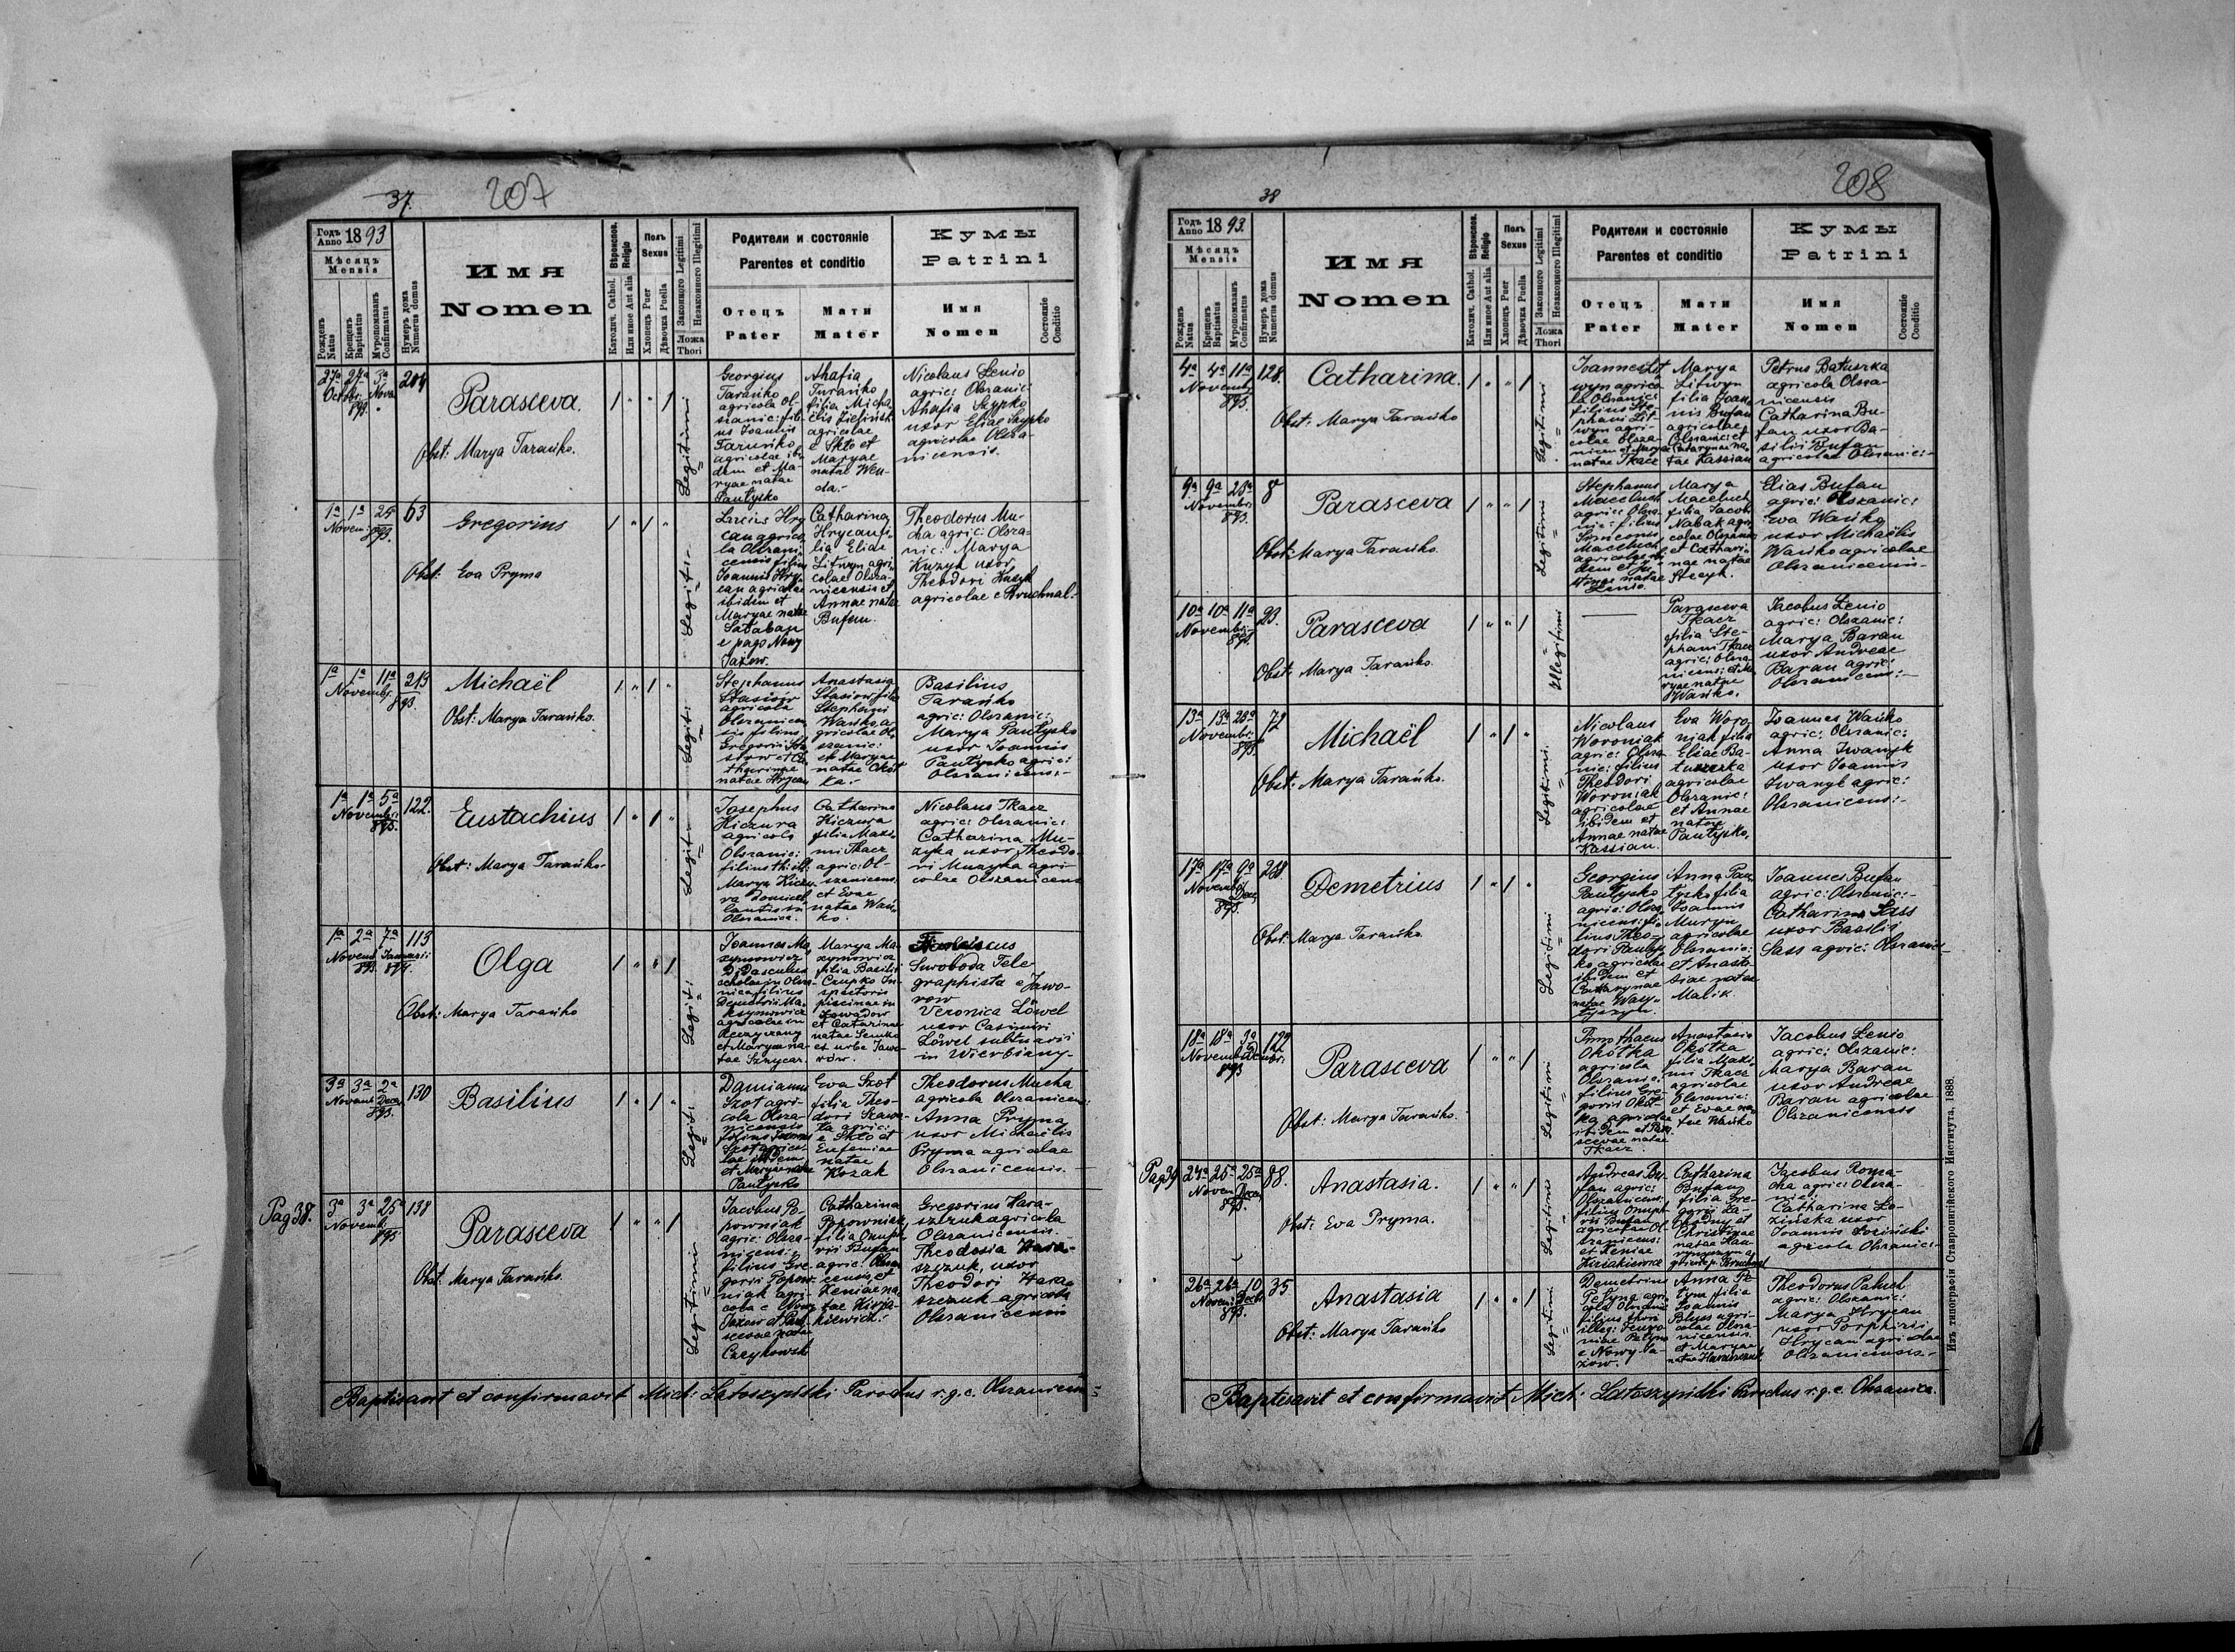 37.
207
Годъ
Anno 1893
Мѣсяцъ
Mensis
Рожденъ
Natus
Крещенъ
Baptisatus
Мѵропомазанъ
Confirmatus
Нумеръ дома
Numerus domus
Имя
Nomen
Вѣроиспов.
Religio
Католич. Cathol.
Или иное Aut alia
Полъ
Sexus
Хлопецъ Puer
Дѣвочка Puella
Законного Legitimi
Незаконного Illegitimi
Ложа
Thori
Родители и состояніе
Parentes et conditio
Отецъ
Pater
Мати
Mater
Кумы
Patrini
Имя
Nomen
Состояніе
Conditio
27ª 27ª 3ª
Octobr. Nova
893.
204
Parasceva.
Obst: Marya Tarańko.
Legitimi
Georgius
Tarańko
agricola Ol-
szanic: fili-
us Joannis
Tarańko
agricolae ibi-
dem et Ma-
ryae natae
Pautysko
Ahafia
Tarańko
filia Micha-
elis
agricolae
e Skło et
Maryae
natae Wen-
da.-
Nicolaus Lenio
agric: Olszanic:
Ahafia Szypko
uxor Eliae Szypko
agricolae Olsza-
nicensis.
1ª 1ª 25
Novem: 893.
63
Gregorius
Obst: Eva Pryma
Legiti-
Hry
can agrico-
la Olszani-
censis filius
Joannis Hry-
can agricolae
ibidem et
Maryae natae
Sałaban
e pago Nowy
Jażow.
Catharina
Hrycan fi-
lia Eliae
Litwyn agri-
colae Olsza-
nicensis et
Annae natae
Bufan.
Theodorus Mu-
cha agric: Olsza-
nic: Marya
Kuzyk uxor
Theodori Kuzyk
agricolae e Hruchnal.
1ª 1ª 11ª
Novemb.
893.
213
Michaël
Obst: Marya Tarańko.
Legiti:
Stephanus
Stasiów
agricola
Olszanicen-
sis filius
Gregorii Sta-
siow et Ca-
tharinae
natae Hrycan
Anastasia
Stasiow filia
Stephani
Wańko a-
gricolae Ol-
szanic:
et Maryae
natae Okół-
ka.-
Basilius
Tarańko
agric: Olszanic:
Marya Pautysko
uxor Joannis
Pautysko agric:
Olszanicens:-
1ª 1ª 5ª
Novembr.
893.
122.
Eustachius
Obst: Marya Tarańko.
Legit-
Josephus
Kiczura
agricola
Olszanic:
filius th: ill:
Marya Kiczu-
ra domicel-
lantis in
Olszanica.
Catharina
Kiczura
filia Maxi-
mi Tkacz
agric: Ol-
szanicens.
et Evae
natae Wań-
ko.
Nicolaus Tkacz
agric: Olszanic:
Catharina Mu-
zyka uxor Theodo-
ri Muzyka agri-
colae Olszanicens
1ª 2ª 7ª
Novemb. Januarii
893. 894.
113
Olga
Obst: Marya Tarańko
Legit:
Joannes Ma-
xymowicz
Didasculus
scholae in Olsza-
nica filius
Demetrii Ma-
xymowicz
agricolae in
et Maryae na-
tae
Marya Ma-
xymowicz
filia Basilii
Czupko In-
spectoris
piscinae in
Zawadow
et Catarinae
natae Senko
et urbe Jawo-
rów.
Franciscus
Swoboda Tele-
graphista e Jawo-
row
Veronica Löwel
uxor Casimiri
Löwel
in Wierbiany-
3ª 3ª 2ª
Novemb. Decz.
893.
130
Basilius
Legiti:
Damianus
Szot agri-
cola Olsza-
nicensis
filius
Szot agrico-
lae ibidem
et Maryae natae
Pautysko
Eva Szot
filia Theo-
dori
ta agric:
e Skło et
Eufemiae
natae
Kozak
Theodorus Mucha
agricola Olszanicens:
Anna Pryma
uxor Michaelis
Pryma agricolae
Olszanicensis.-
Pag 38.
3ª 3ª 25ª
Novemb.
893
138
Parasceva
Obst: Marya Tarańko.
Legitimi
Jacobus Po-
powniak
agric: Olsza-
nicens:
filius Gre-
gorii Popow-
niak agri-
cola e Nowy
Jażow et Para-
scevae natae
Czeykowski
Catharina
Popowniak
filia Onuph-
rii Bufan
agric: Olszan-
censis et
Xeniae na-
tae Kirja-
kiewicz.
Gregorius Hara-
szczuk agricola
Olszanicensis.
Theodosia Hara-
szczuk, uxor
Theodori Hara-
szczuk agricola
Olszanicensis
Baptisavit et confirmavit Mich: Latoszynski Parochus r.g.c. Olszanicens:
38
208
Годъ
Anno 1893.
Мѣсяцъ
Mensis
Рожденъ
Natus
Крещенъ
Baptisatus
Мѵропомазанъ
Confirmatus
Нумеръ дома
Numerus domus
Имя
Nomen
Вѣроиспов.
Religio
Католич. Cathol.
Или иное Aut alia
Полъ
Sexus
Хлопецъ Puer
Дѣвочка Puella
Законного Legitimi
Незаконного Illegitimi
Ложа
Thori
Родители и состояніе
Parentes et conditio
Отецъ
Pater
Мати
Mater
Кумы
Patrini
Имя
Nomen
Состояніе
Conditio
4ª 4ª 11ª
Novemb.
893.
128.
Catharina.
Obst: Marya Tarańko
Legitimi
Joannes Lit-
wyn agrico-
la Olszanic:
filius Ste-
phani Lit-
wyn agri-
colae Olsza-
nicen et Maryae
natae Tkacz
Marya
Litwyn
filia Joan-
nis Bufan
agricolae
Olszanic: et
Catarynae na-
tae Kassian
Petrus Batuszka
agricola Olsza-
nicensis
Catharina Bu-
fan uxor Ba-
silii Bufan
agricolae Olszanic:-
9ª 9ª 28ª
Novembr.
893.
8
Parasceva
Obst: Marya Tarańko.
Legitimi
Stephanus
Macebuch
agric: Olsza-
nic: filius
Simeonis
Macebuch
agricolae ibi-
dem et Ju-
stinae natae
Lenio.
Marya
Macebuch
filia Jacobi
Nabak agri-
colae Olszanic
et Cathari-
nae natae
Stecyk.
Elias Bufan
agric: Olszanic:
Eva Wańko
uxor Michaelis
Wańko agricolae
Olszanicensis-
10ª 10ª 11ª
Novembr.
893.
23.
Parasceva
Obst: Marya Tarańko.
Illegitimi
Parasceva
Tkacz
filia Ste-
phani Tkacz
agric: Olsza-
nicens: et Ma-
ryae natae
Wańko.
Jacobus Lenio
agric: Olszanic:
Marya Baran
uxor Andreae
Baran agric:
Olszanicens:-
13ª 13ª 28ª
Novembr.
893.
72
Michaël
Obst: Marya Tarańko.
Legitimi.
Nicolaus
Woroniak
agric: Olsza-
nic: filius
Theodori
Woroniak
agricolae
ibidem et
Annae natae
Kassian.
Eva Woro-
niak filia
Eliae Ba-
tuszka
agricolae
Olszanic:
et Annae
natae
Pautysko.
Joannes Wańko
agric: Olszanic:
Anna Iwanyk
uxor Joannis
Iwanyk agric:
Olszanicens:-
17ª 17ª 9ª
Novemb. Decz.
893.
238.
Demetrius
Obst: Marya Tarańko
Legitimi
Georgius
Pautysko
agric: Olsza-
nicens: fi-
lius Theo-
dori Pautys-
ko agricolae
ibidem et
Catarynae
natae Wasy-
Anna Pau-
tysko filia
Joannis
Muryn
agricolae
Olszanic:
et Anasta-
siae natae
Malik.
Joannes Bufan
agric: Olszanic:-
Catharina Sass
uxor Basilii
Sass agric: Olszanic-
18ª 18ª 3ª
Novemb. Decembr.
893
122
Parasceva
Obst: Marya Tarańko.
Legitimi
Timothaeus
Okółka
agricola
Olszanic:
filius Gre-
gorii Okół-
ka agricolae
ibidem et Para-
scevae natae
Tkacz
Anastasia
Okółka
filia Maxi-
mi Tkacz
agricolae
Olszanic:
et Evae na-
tae Wańko
Jacobus Lenio
agric: Olszanic:
Marya Baran
uxor Andreae
Baran agricolae
Olszanicensis
Pag 39
24ª 25ª 25ª
Novem. Decz.
893.
88.
Anastasia.
Obst: Eva Pryma.
Legitimi
Andreas Bu-
fan agric:
Olszanicens:
filius Onuph-
rii Bufan
agricolae Ol-
szanicens:
et Xeniae
Kiriakiewicz
Catharina
Bufan
filia Gre-
gorii Za-
hrodny et
Christinae
natae
Jacobus Roma-
cha agric: Olsza-
nic:
Catharina Lo-
zińska uxor
Joannis Loziński
agricola Olszanic:-
26ª 26ª 10
Novem. Decb.
893.
35
Anastasia
Obst: Marya Tarańko
Legitimi
Demetrius
Petyna agri-
cola Olszanic
filius thori
illeg: Euro-
niae Petyna
e Nowy Ja-
żow.
Anna Pe-
tyna filia
Joannis
agri-
colae Olsza-
nicensis
et Maryae
natae Haraszczuk
Theodorus Paluch
agric: Olszanic:
Marya Hrycan
uxor Porphirii
Hrycan agricolae
Olszanicensis-
Baptisavit et confirmavit Mich: Latoszynski Parochus r.g.c. Olszanica.
Изъ типографіи Ставропигійского Института, 1888.